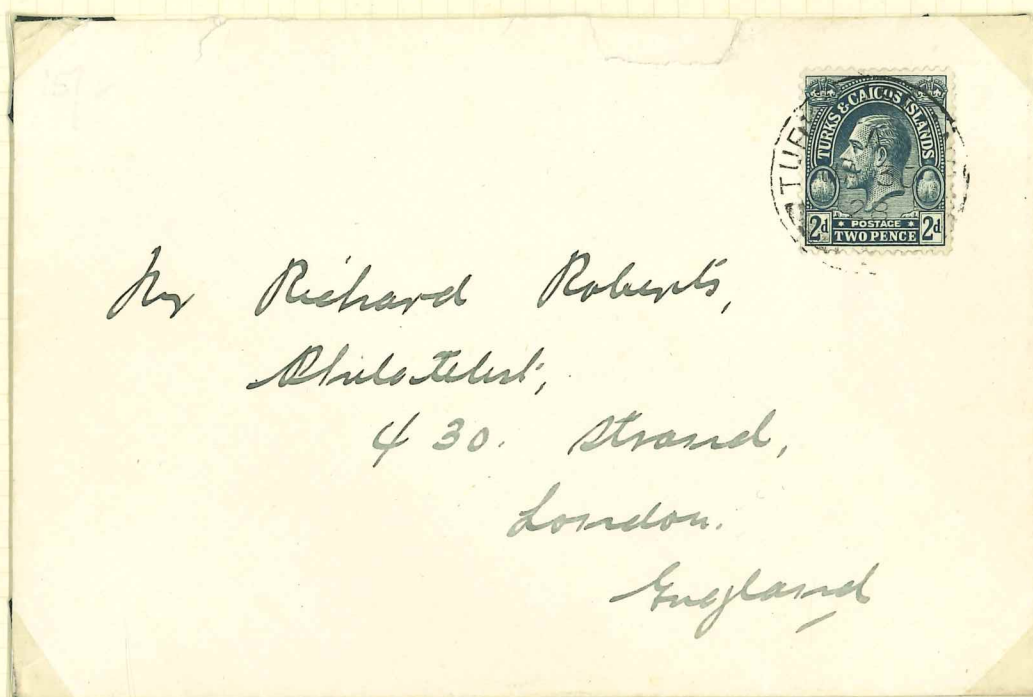 TURKS & CAICOS ISLANDS
2d POSTAGE 2d
TWO PENCE
Mr Richard Roberts,
Philatelist,
430. Strand,
London.
England